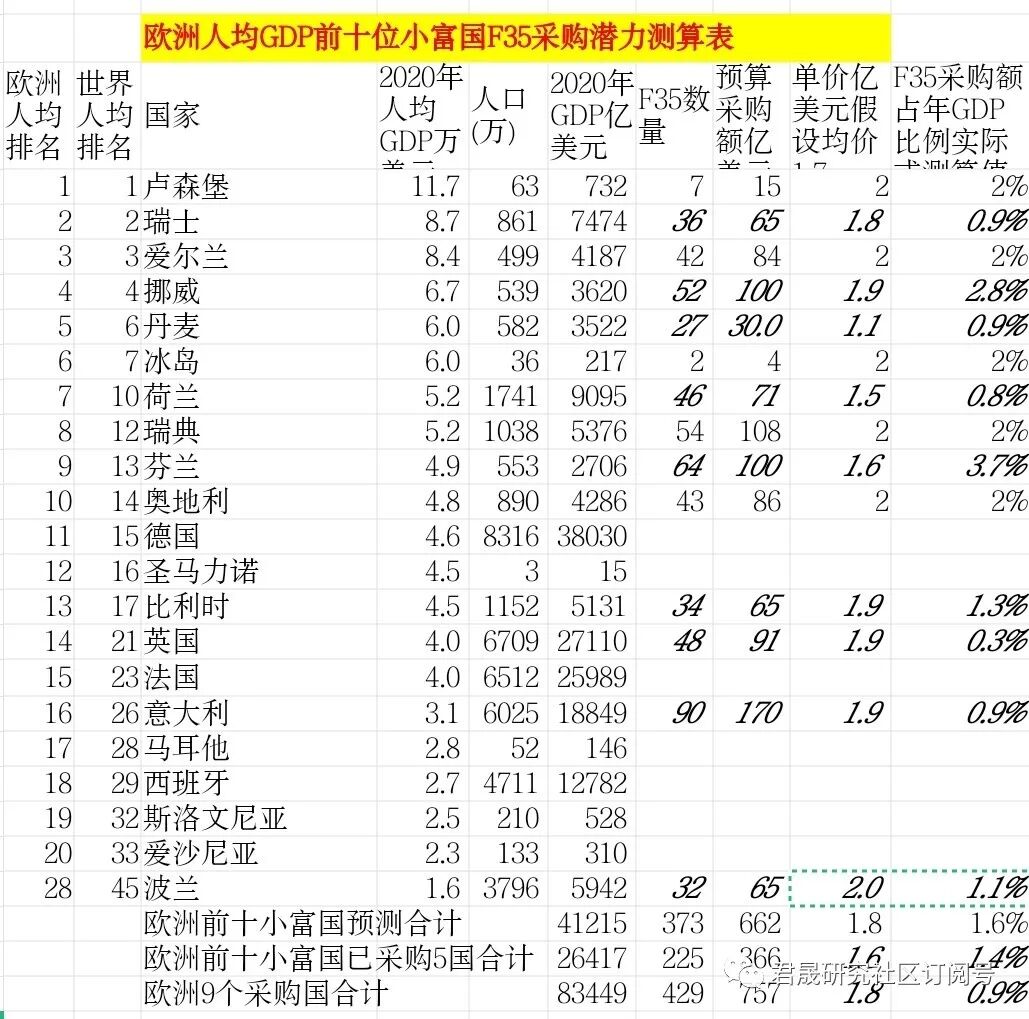 欧洲人均GDP前十位小富国F35采购潜力测算表
欧洲人均排名 世界人均排名 国家 2020年人均GDP万美元 人口(万) 2020年GDP亿美元 F35数量 预算采购额亿美元 单价亿美元假设均价1.7 F35采购额占年GDP比例实际或测算值
1 1 卢森堡 11.7 63 732 7 15 2 2%
2 2 瑞士 8.7 861 7474 36 65 1.8 0.9%
3 3 爱尔兰 8.4 499 4187 42 84 2 2%
4 4 挪威 6.7 539 3620 52 100 1.9 2.8%
5 6 丹麦 6.0 582 3522 27 30.0 1.1 0.9%
6 7 冰岛 6.0 36 217 2 4 2 2%
7 10 荷兰 5.2 1741 9095 46 71 1.5 0.8%
8 12 瑞典 5.2 1038 5376 54 108 2 2%
9 13 芬兰 4.9 553 2706 64 100 1.6 3.7%
10 14 奥地利 4.8 890 4286 43 86 2 2%
11 15 德国 4.6 8316 38030
12 16 圣马力诺 4.5 3 15
13 17 比利时 4.5 1152 5131 34 65 1.9 1.3%
14 21 英国 4.0 6709 27110 48 91 1.9 0.3%
15 23 法国 4.0 6512 25989
16 26 意大利 3.1 6025 18849 90 170 1.9 0.9%
17 28 马耳他 2.8 52 146
18 29 西班牙 2.7 4711 12782
19 32 斯洛文尼亚 2.5 210 528
20 33 爱沙尼亚 2.3 133 310
28 45 波兰 1.6 3796 5942 32 65 2.0 1.1%
欧洲前十小富国预测合计 41215 373 662 1.8 1.6%
欧洲前十小富国已采购5国合计 26417 225 366 1.6 1.4%
欧洲9个采购国合计 83449 429 757 1.8 0.9%
君晟研究社区订阅号